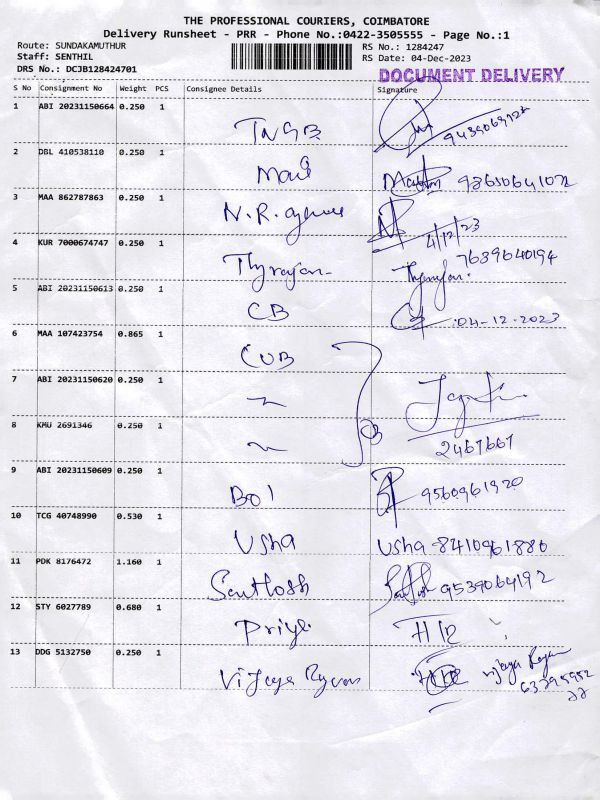 THE PROFESSIONAL COURIERS, COIMBATORE
Delivery Runsheet - PRR - Phone No.:0422-3505555 - Page No.:1
Route: SUNDAKAMUTHUR RS No.: 1284247
Staff: SENTHIL RS Date: 04-Dec-2023
DRS No.: DCJB128424701
DOCUMENT DELIVERY
S No Consignment No Weight PCS Consignee Details Signature
1 ABI 20231150664 0.250 1
TNGB
2 DBL 410538110 0.250 1
Mani 9865064102
3 MAA 862787863 0.250 1
N.R.
4/12/23
4 KUR 7000674747 0.250 1
Thyrajan 7639640194
5 ABI 20231150613 0.250 1
CB 04-12-2023
6 MAA 107423754 0.865 1
CUB
7 ABI 20231150620 0.250 1
8 KMU 2691346 0.250 1
2467667
9 ABI 20231150609 0.250 1
BOI 9560961920
10 TCG 40748990 0.530 1
Usha Usha 8410961880
11 PDK 8176472 1.160 1
Santhosh 9539064192
12 STY 6027789 0.680 1
Priya
13 DDG 5132750 0.250 1
Vijaya